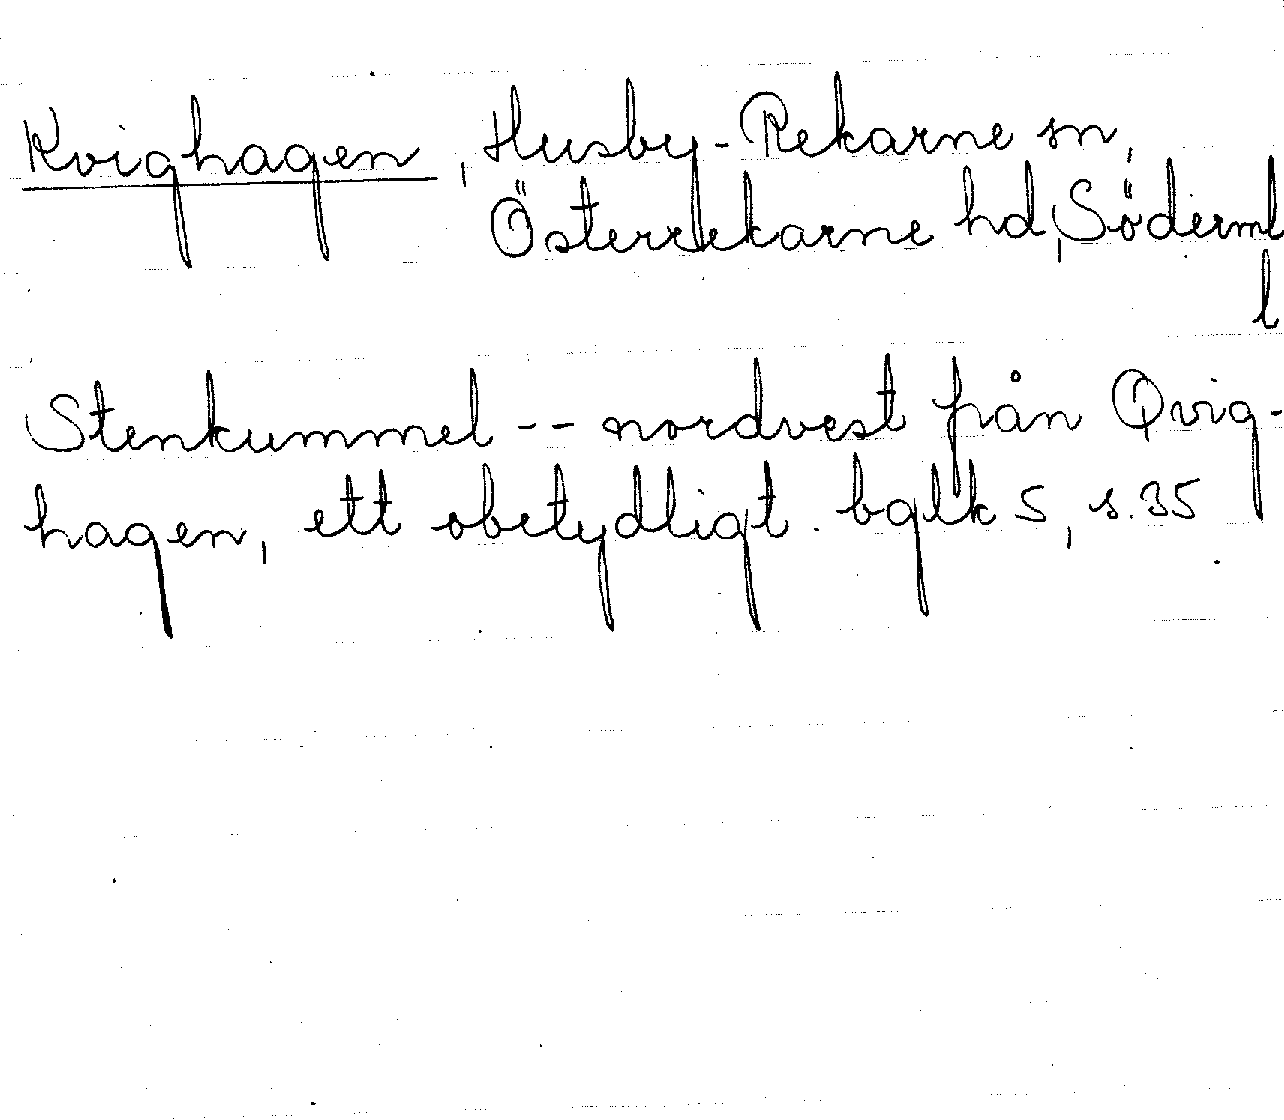 Kvighagen, Husby-Rekarne sn,
Österrekarne hd, Söderml
l
Stenkummel -- nordvest från Qvig-
hagen, ett obetydligt. bglk 5, s. 35